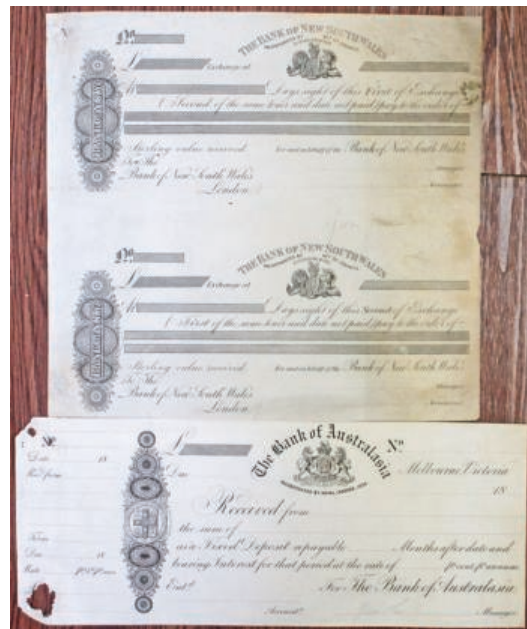 No
THE BANK OF NEW SOUTH WALES
£ Exchange at
At Days sight of this First of Exchange
(Second of the same tenor and date not paid) pay to the order of
Sterling value received. Bank of New South Wales
To The
Bank of New South Wales
London.
No
THE BANK OF NEW SOUTH WALES
£ Exchange at
At Days sight of this Second of Exchange
(First of the same tenor and date not paid) pay to the order of
Sterling value received. Bank of New South Wales
To The
Bank of New South Wales
London.
No
The Bank of Australasia
No
Date 18
£
Due
Melbourne Victoria
INCORPORATED BY ROYAL CHARTER, 1835
18
Received from
the sum of
as a Fixed Deposit repayable Months after date and
bearing Interest for that period at the rate of
Due 18
Rate
Entd
For The Bank of Australasia
Accountt
Manager